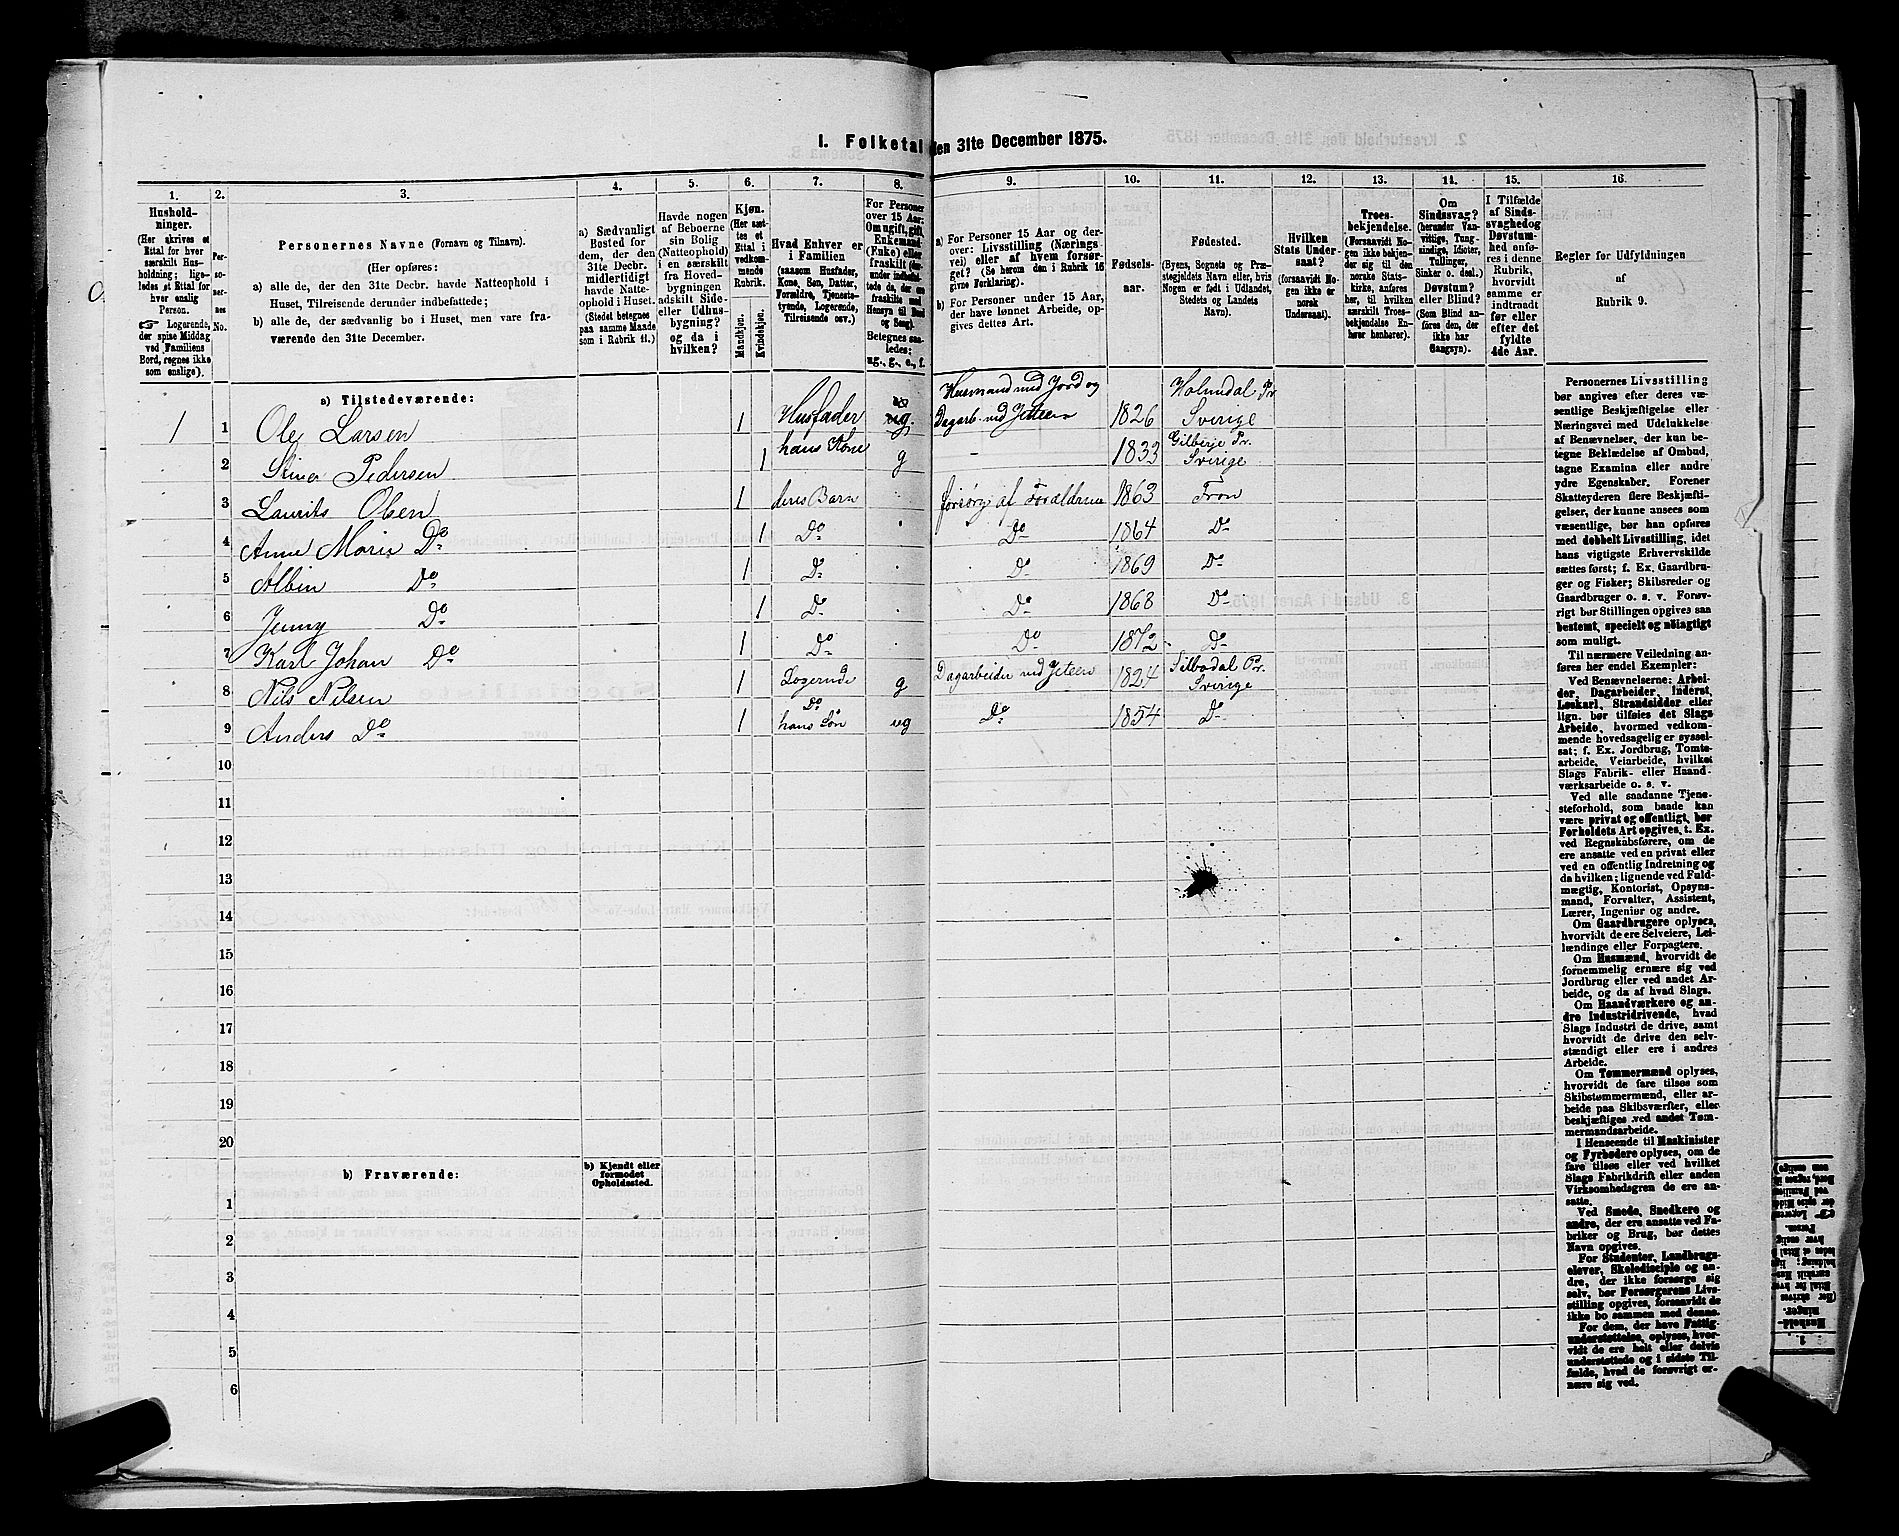 1. Folketal den 31te December 1875.
1. 2. 3. 4. 5. 6. 7. 8. 9. 10. 11. 12. 13. 14. 15. 16.
Hushold-
ninger.
(Her skrives et
Ettal for hver
særskilt Hus-
holdning; lige-
ledes et Ettal for
hver enslig
Person.
☞ Logerende,
der spise Middag
ved Familiens
Bord, regnes ikke
som enslige).
Per-
so-
ner-
nes
No.
Personernes Navne (Fornavn og Tilnavn).
(Her opføres:
a) alle de, der den 31te Decbr. havde Natteophold i
Huset, Tilreisende derunder indbefattede;
b) alle de, der sædvanlig bo i Huset, men vare fra-
værende den 31te December.
a) Sædvanligt
Bosted for
dem, der den
31te Decbr.
midlertidigt
havde Natte-
ophold i Huset.
(Stedet betegnes
paa samme Maade
som i Rubrik 11.)
Havde nogen
af Beboerne
sin Bolig
(Natteophold)
i en særskilt
fra Hoved-
bygningen
adskilt Side-
eller Udhus-
bygning?
og da i
hvilken?
Kjøn.
(Her sæt-
tes et
Ettal i
vedkom-
mende
Rubrik.
Mandkjøn.
Kvindekjøn.
Hvad Enhver er
i Familien
(saasom Husfader,
Kone, Søn, Datter,
Forældre, Tjeneste-
tyende, Logerende,
Tilreisende osv.)
For Personer
over 15 Aar:
Om ugift, gift,
Enkemand
(Enke) eller
fraskilt
Betegnes saa-
ledes:
ug., g., e., f.
a) For Personer 15 Aar og der-
over: Livsstilling (Nærings-
vei) eller af hvem forsør-
get? (Se herom den i Rubrik 16
givne Forklaring).
b) For Personer under 15 Aar,
der have lønnet Arbeide, op-
gives dettes Art.
Fødsels-
aar.
Fødested.
(Byens, Sognets og Præ-
stegjeldets Navn eller, hvis
Nogen er født i Udlandet,
Stedets og Landets
Navn).
Hvilken
Stats Under-
saat?
(forsaavidt No-
gen ikke er
norsk
Undersaat).
Troes-
bekjendelse.
(Forsaavidt No-
gen ikke beken-
der sig til den
norske Stats-
kirke, anføres
her, til hvilken
særskilt Troes-
bekjendelse En-
hver henhører).
Om
Sindssvag?
(herunder Van-
vittige, Tung-
sindige, Idioter,
Tullinger,
Sinker o. desl.)
Døvstum?
eller Blind?
(Som Blind an-
føres den, der
ikke har
Gangsyn).
I Tilfælde
af Sinds-
svaghed og
Døvstum-
hed anfø-
res i denne
Rubrik,
hvorvidt
samme er
indtraadt
før eller
efter det
fyldte
4de Aar.
Regler for Udfyldningen
af
Rubrik 9.
a) Tilstedeværende:
1 1 Ole Larsen 1 Husfader g Husmand med Jord og Dagarb. ved 1826 Holmdal Pr Sverige
2 Stina Pedersen 1 hans Kone g - 1833 Gilberje Pr. Sverige
3 Laurits Olsen 1 deres Barn forsørg af Foræld 1863 Tron
4 Anne Marie Do 1 Do Do 1864 Do
5 Albin Do 1 Do Do 1869 Do
6 Jenny Do 1 Do Do 1868 Do
7 Karl Johan Do 1 Do Do 1872 Do
8 Nils Nilsen 1 Logerende g Dagarbeider ved 1824 Silbodal Pr. Sverige
9 Anders Do 1 Do hans Søn ug Do 1854 Do
10
11
12
13
14
15
16
17
18
19
20
b) Fraværende:
b) Kjendt eller
formodet
Opholdssted.
1
2
3
4
5
6
Personernes Livsstilling
bør angives efter deres væ-
sentlige Beskjæftigelse eller
Næringsvei med Udelukkelse
af Benævnelser, der kun be-
tegne Beklædelse af Ombud,
tagne Examina eller andre
ydre Egenskaber. Forener
Skatteyderen flere Beskjæfti-
gelser, der kunne ansees som
væsentlige, bør han opføres
med dobbelt Livsstilling, idet
hans vigtigste Erhvervskilde
sættes først; f. Ex. Gaardbru-
ger og Fisker; Skibsreder og
Gaardbruger o. s. v. Forøv-
rigt bør Stillingen opgives saa
bestemt, specielt og nøiagtigt
som muligt.
Til nærmere Veiledning an-
føres her endel Exempler:
Ved Benævnelserne: Arbei-
der, Dagarbeider, Inderst,
Løskarl, Strandsidder eller
lign. bør tilføies det Slags
Arbeide, hvormed vedkom-
mende hovedsagelig er syssel-
sat; f. Ex. Jordbrug, Tomte-
arbeide, Veiarbeide, hvilket
Slags Fabrik- eller Haand-
værksarbeide o. s. v.
Ved alle saadanne Tjene-
steforhold, som baade kan
være privat og offentligt, bør
Forholdets Art opgives, t. Ex.
ved Regnskabsførere, om de
ere ansatte ved en privat eller
ved en offentlig Indretning og
da hvilken; lignende ved Fuld-
mægtig, Kontorist, Opsyns-
mand, Forvalter, Assistent,
Lærer, Ingeniør og andre.
Om Gaardbrugere oplyses,
hvorvidt de ere Selveiere, Lei-
lændinge eller Forpagtere.
Om Husmænd, hvorvidt de
fornemmelig ernære sig ved
Jordbrug eller ved andet Ar-
beide, og da af hvad Slags.
Om Haandværkere og an-
dre Industridrivende, hvad
Slags Industri de drive, samt
hvorvidt de drive den selv-
stændigt eller ere i andres
Arbeide.
Om Tømmermænd oplyses,
hvorvidt de fare tilsøs som
Skibstømmermænd, eller ar-
beide paa Skibsværfter, eller
beskjæftiges ved andet Tøm-
mermandsarbeide.
I Henseende til Maskinister
og Fyrbødere oplyses, om de
fare tilsøs eller ved hvilket
Slags Fabrikdrift eller anden
Virksomhedsgren de ere an-
satte.
Ved Smede, Snedkere og
andre, der ere ansatte ved Fa-
briker og Brug, bør dettes
Navn opgives.
For Studenter, Landbrugs-
elever, Skoledisciple og an-
dre, der ikke forsørge sig
selv, bør Forsørgerens Livs-
stilling opgives, forsaavidt de
ikke bo sammen med denne.
For dem, der have Fattig-
understøttelse, oplyses, hvor-
vidt de ere helt eller delvis
understøttede og i sidste Til-
fælde, hvad de forøvrigt er-
nære sig ved.